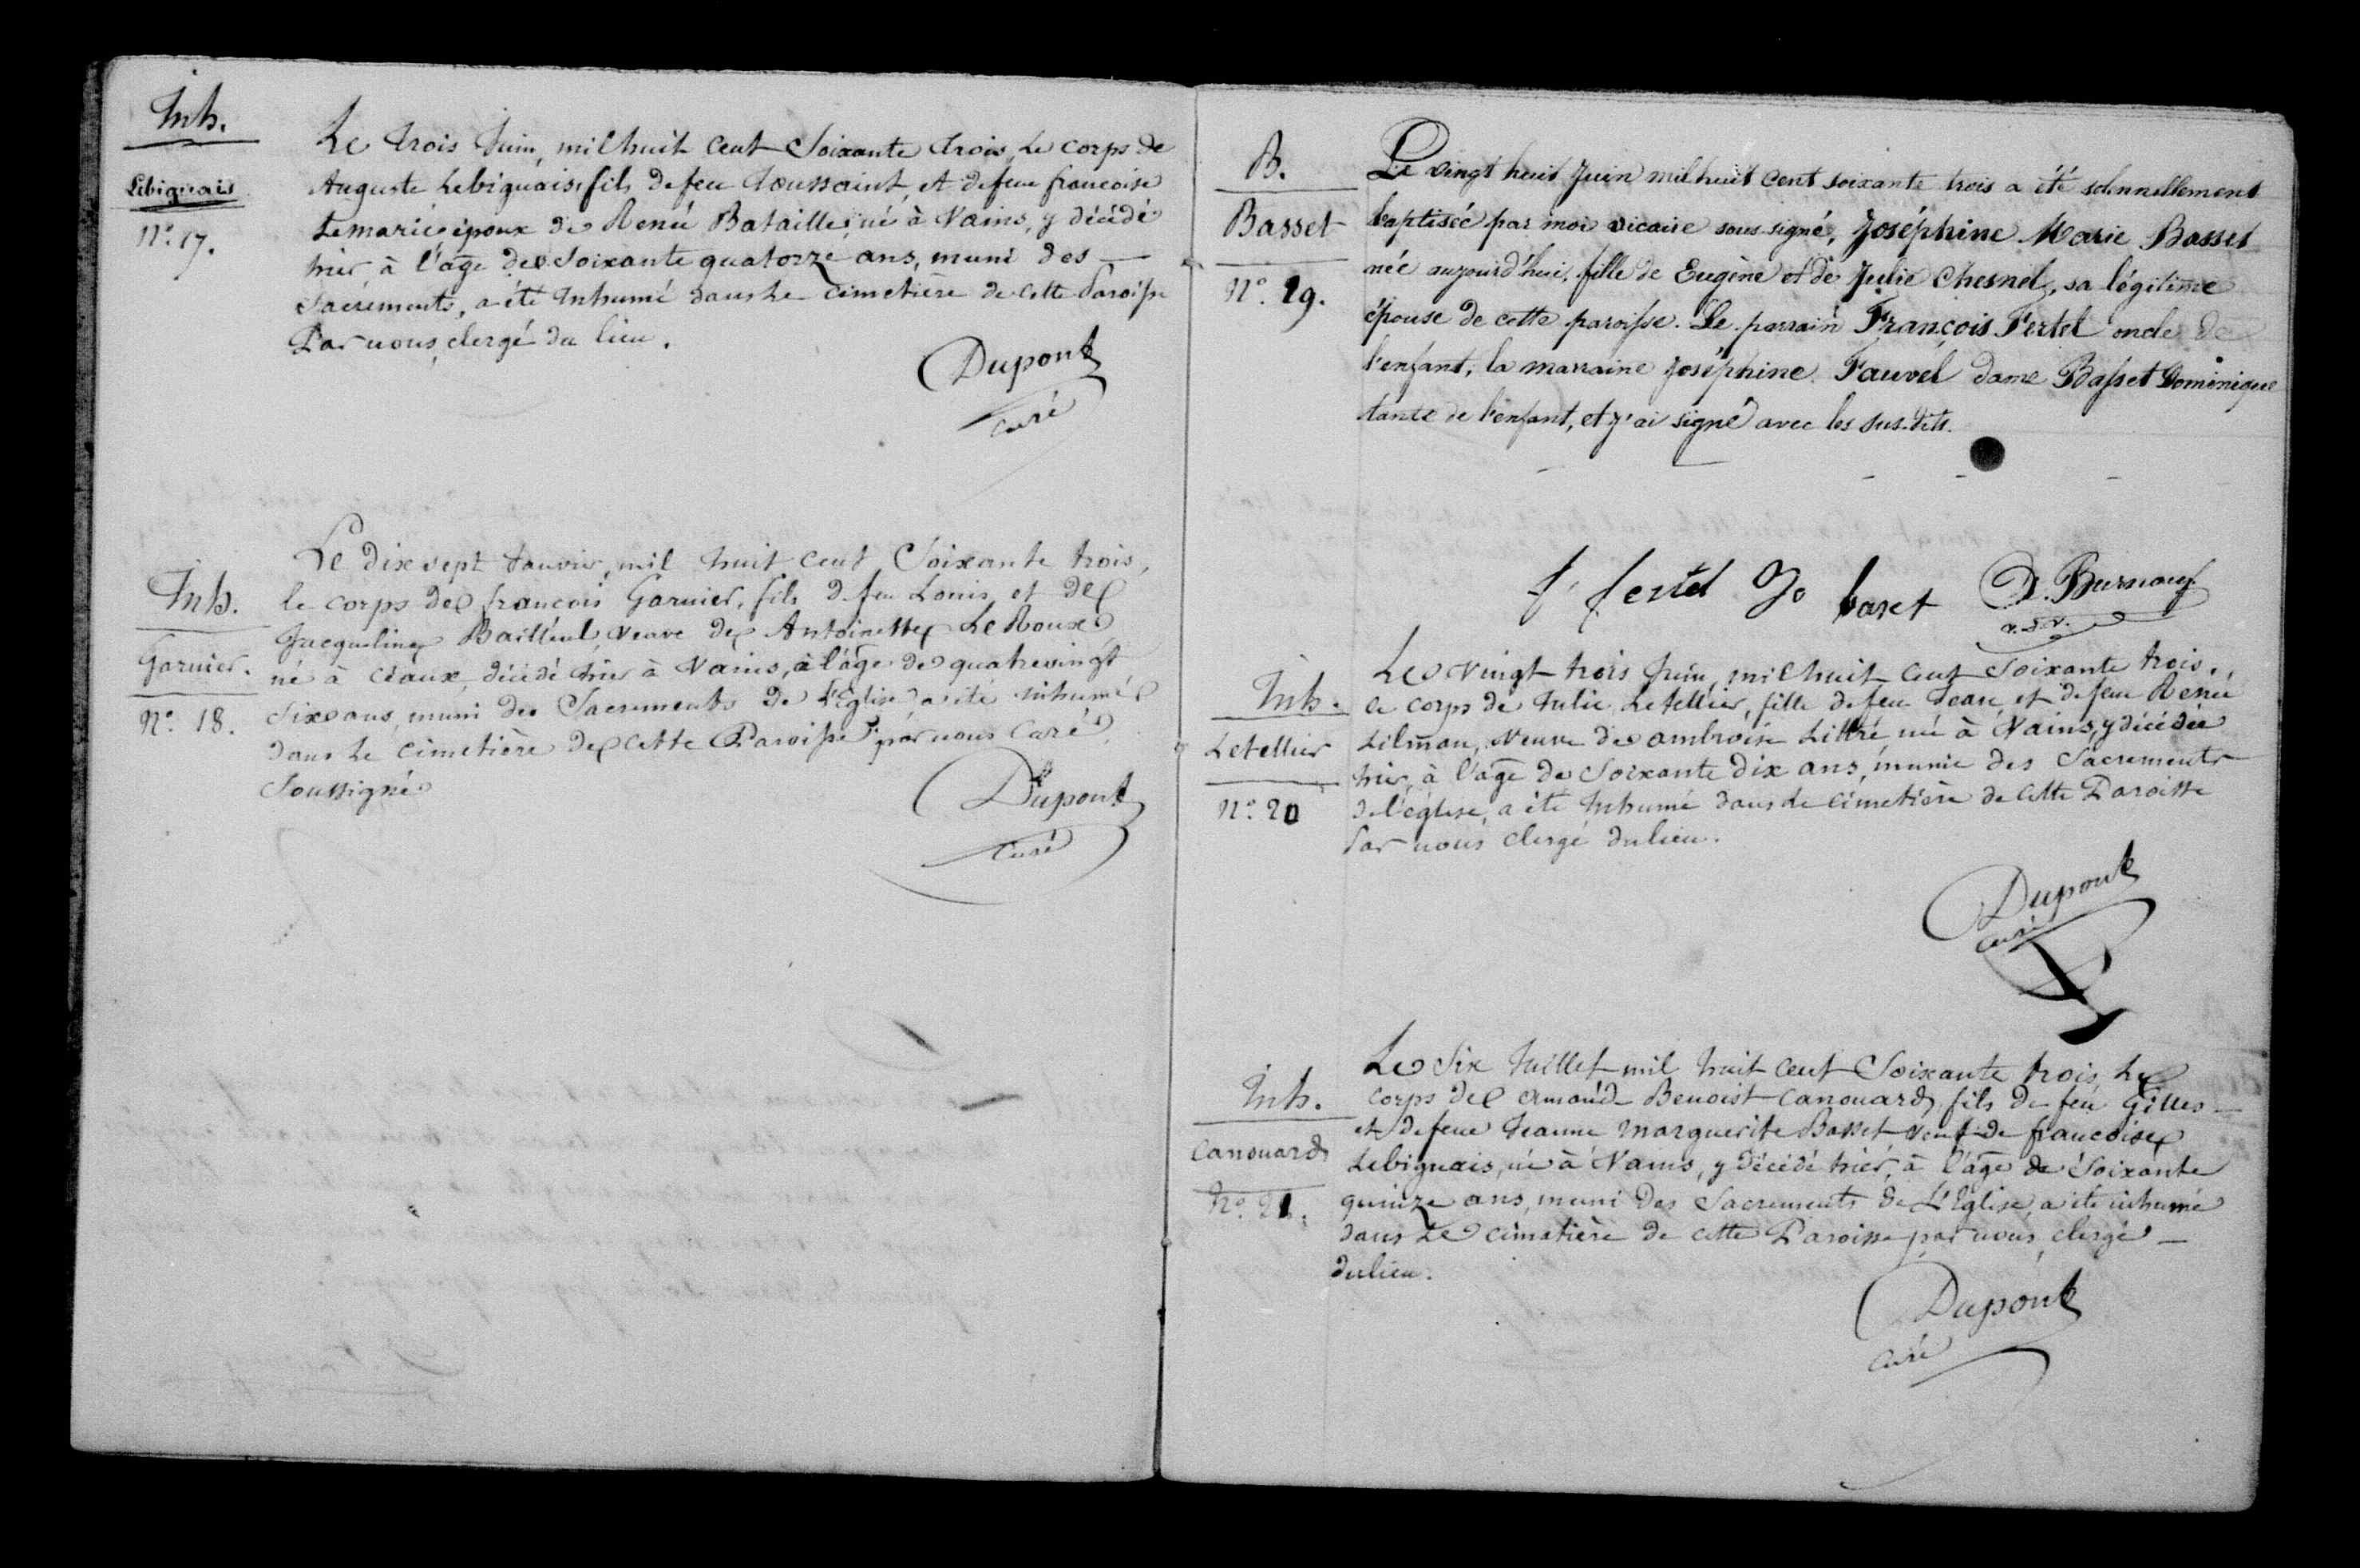 Inh.
Lebiguais
N°. 17.
Le trois Juin, mil huit cent Soixante trois, Le corps de
Auguste Lebiguais, fils de feu Toussaint, et de feue francoise
Lemarié époux de Renée Bataille, né à Vains, y décédé
hier à l'age de Soixante quatorze ans, muni des —
Sacrements, a été Inhumé dans Le cimetière de cette Paroisse
Par nous, clergé du lieu.
Dupont
curé
Inh.
Garnier.
N°. 18.
Le dix sept Janvier, mil huit cent Soixante trois,
le corps de francois Garnier, fils de feu Louis, et de
Jacqueline Bailleul, veuve de Antoinette Le Roux,
né à Céaux, décédé hier à Vains, à l'âge de quatrevingt
Six ans, muni des Sacrements de l'Eglise, a été inhumé
dans Le cimetière de cette Paroisse par nous Curé
Soussigné
Dupont
Curé
B.
Basset
N°. 19.
Le vingt huit Juin mil huit cent soixante trois a été solennellement
baptisée par moi vicaire sous signé, Joséphine Marie Basset
née aujourd'hui, fille de Eugène et de Julie Chesnel, sa légitime
épouse de cette paroisse. Le parrain François Fertel oncle de
l'enfant, la marraine Joséphine Fauvel dame Basset Dominique
tante de l'enfant, et j'ai signé avec les sus-dits.
f fertel Jo baset D. Burnouf
v. d. v.
Inh.
Letellier
N°. 20
Le vingt trois Juin, mil huit cent Soixante trois,
le corps de Julie Letellier, fille de feu Jean, et de feue Renée
Lilman, Veuve de ambroise Littré, né à Vains, y décédée
hier, à l'age de Soixante dix ans, munie des Sacrements
de l'église, a été Inhumé dans Le cimetière de cette Paroisse
Par nous clergé du lieu.
Dupont
curé
Inh.
Canouard
N°. 21.
Le Six Juillet mil huit cent Soixante trois, Le
corps de Amand Benoist Canouard, fils de feu Gilles —
et de feue Jeanne Marguerite Basset veuf de francoise
Lebiguais, né à Vains, y décédé hier, à l'âge de Soixante
quinze ans, muni des Sacrements de L'Eglise, a été inhumé
dans Le cimetière de cette Paroisse par nous, clergé —
du lieu.
Dupont
Curé